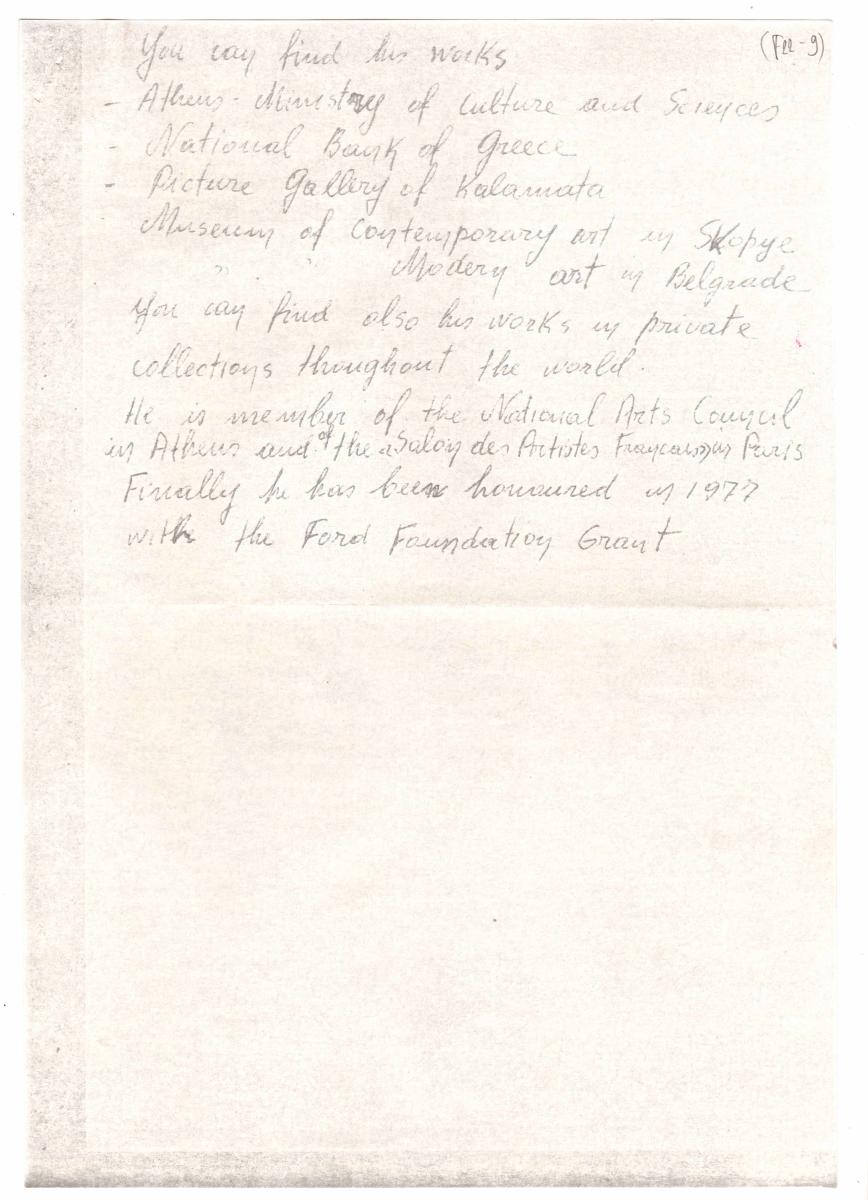 (FN-9)
You can find his works
- Athens - Ministry of Culture and Sciences
- National Bank of Greece
- Picture Gallery of Kalamata
Museum of Contemporary art in Skopye
" " Modern art in Belgrade
You can find also his works in private
collections thoughout the world.
He is member of the National Arts Council
in Athens and of the «Salon des Artistes Francais» in Paris
Finally he has been honoured in 1977
with the Ford Foundation Grant